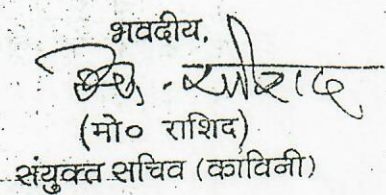 भवदीय,
मो. राशिद
(मो० राशिद)
संयुक्त सचिव (कांविनी)